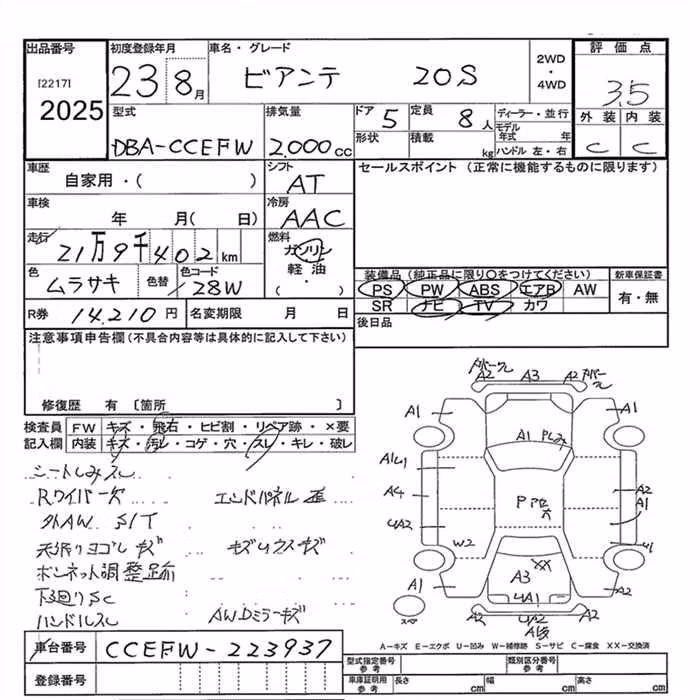 出品番号 初度登録年月 車名・グレード 2WD・4WD 評価点
[2217] 2025 23 8月 ビアンテ 20S 3.5
型式 排気量 ドア 5 定員 8人 ディーラー・並行 外装 内装
DBA-CCEFW 2,000cc 形状 積載 kg モデル年式 年 ハンドル 左・右 C C
車歴 自家用・( ) シフト AT セールスポイント (正常に機能するものに限ります)
車検 年 月( 日) 冷房 AAC
走行 21万9千402km 燃料 ガソリン 軽油 ( ・ )
色 ムラサキ 色替 色コード 28W
装備品(純正品に限り○をつけてください) 新車保証書
PS PW ABS エアB AW 有・無
SR ナビ TV カワ
R券 14,210円 名変期限 月 日 後日品
注意事項申告欄(不具合内容等は具体的に記入して下さい)
修復歴 有 〔箇所 〕
検査員 FW キズ・飛石・ヒビ割・リペア跡・×要
記入欄 内装 キズ・汚レ・コゲ・穴・スレ・キレ・破レ
シートしみスレ
Rワイパー欠 エンドパネル
外AW S/T
天張りヨゴレ キズ キズ
ボンネット調整跡
下廻りSC
ハンドルスレ
車台番号 CCEFW-223937
登録番号
A2 A3 A2
A1 A1
A1
A4 A2
A1
UA2 W2
P
XX
A1 A3 A1
UA1
A2 UA2 A2
スペア
A-キズ E-エクボ U-凹み W-補修跡 S-サビ C-腐食 XX-交換済
型式指定番号 参考 類別区分番号 参考
車庫証明用 参考 長さ cm 幅 cm 高さ cm